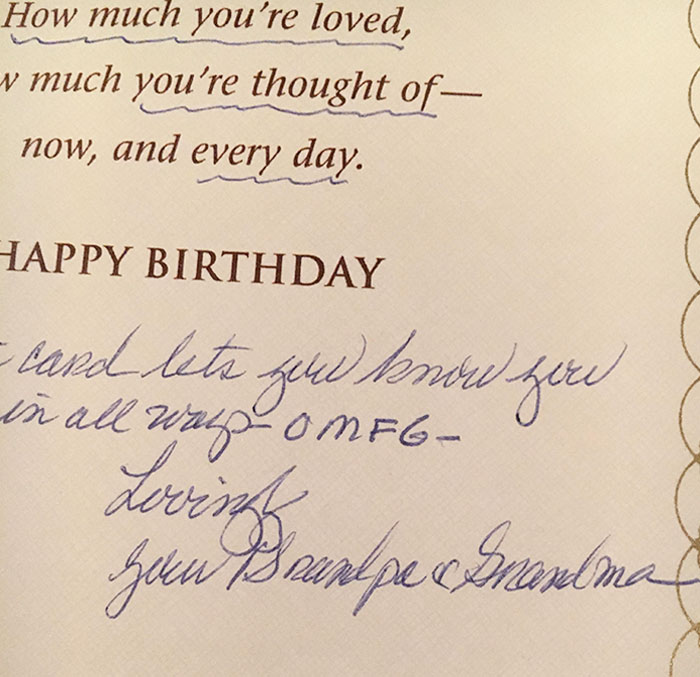 How much you're loved,
w much you're thought of—
now, and every day.
HAPPY BIRTHDAY
card lets you know you
in all ways - OMFG -
Loving
your Grandpa & Grandma